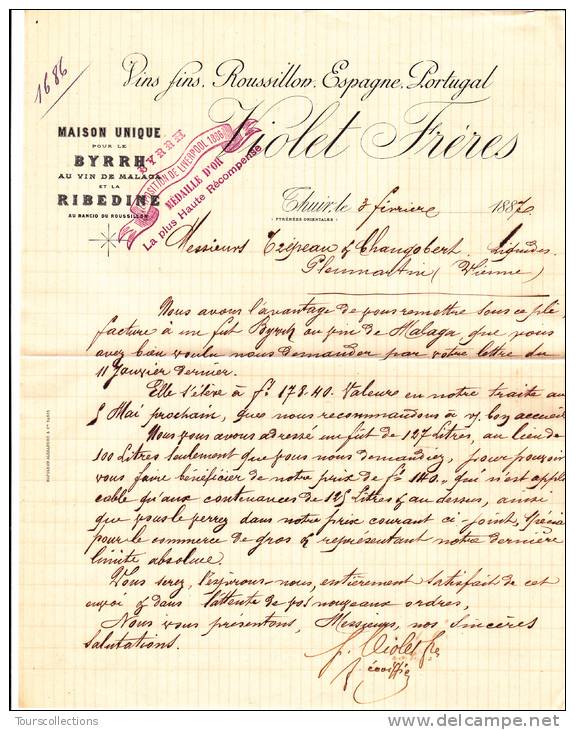 1686
Vins fins. Roussillon. Espagne. Portugal
Violet Frères
MAISON UNIQUE
POUR LE
BYRRH
AU VIN DE MALAGA
ET LA
RIBEDINE
AU RANCIO DU ROUSSILLON
BYRRH
EXPOSITION DE LIVERPOOL 1886
MÉDAILLE D'OR
La plus Haute Récompense
Thuir, le 3 février 1887
(PYRÉNÉES ORIENTALES)
Messieurs & Liquides
Pleumartin (Vienne)
Nous avons l'avantage de vous remettre sous ce pli,
facture à un fut Byrrh au vin de Malaga, que vous
avez bien voulu nous demander par votre lettre du
11 Janvier dernier.
Elle s'élève à fs. 178.40. Valeurs en notre traite au
5 Mai prochain, que nous recommandons à v/ bon accueil
Nous vous avons adressé un fût de 127 Litres, au lieu de
100 Litres seulement que vous nous demandiez, pour pouvoir
vous faire bénéficier de notre prix de fs 140.. qui n'est appli
cable qu'aux contenances de 125 Litres & au dessus, ainsi
que vous le verrez dans notre prix courant ci-joint, spécial
pour le commerce de gros & représentant notre dernière
limite absolue.
Vous serez, l'espérons-nous, entièrement satisfait de cet
envoi & dans l'attente de vos nouveaux ordres,
Nous vous présentons, Messieurs, nos sincères
salutations.
p. Violet fs
Tourscollections
delcampe.net